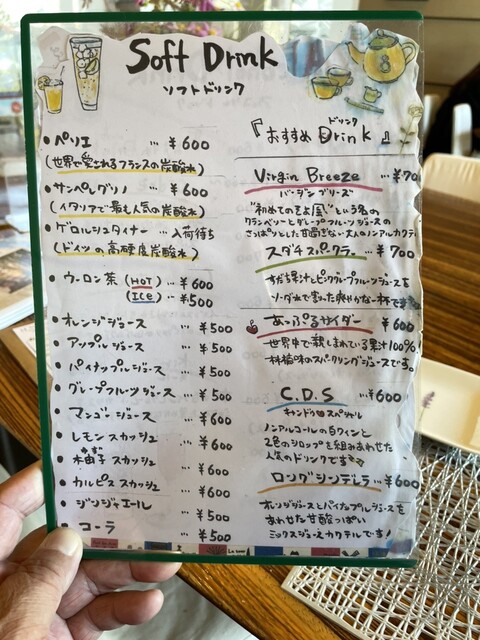 Soft Drink
ソフトドリンク
• ペリエ … ¥600
(世界で愛されるフランスの炭酸水)
• サンペレグリノ … ¥600
(イタリアで最も人気の炭酸水)
• ゲロルシュタイナー … 入荷待ち
(ドイツの高硬度炭酸水)
• ウーロン茶 (HOT) … ¥600
(ICE) … ¥500
• オレンジジュース … ¥500
• アップルジュース … ¥500
• パイナップルジュース … ¥500
• グレープフルーツジュース … ¥500
• マンゴージュース … ¥600
• レモンスカッシュ … ¥600
• 柚子スカッシュ … ¥600
• カルピススカッシュ … ¥600
• ジンジャエール … ¥500
• コーラ … ¥500
ドリンク
『おすすめ Drink』
Virgin Breeze … ¥70
バージンブリーズ
"初めてのそよ風"という名の
クランベリーとグレープフルーツジュースの
さっぱりとした甘過ぎない大人のノンアルカクテル
スダチスパークラー … ¥700
すだち果汁とピンクグレープフルーツジュースを
ソーダ水で割った爽やかな一杯です
あっぷるサイダー ¥600
世界中で親しまれている果汁100%!
林檎味のスパークリングジュースです。
C.D.S … ¥600
キャンドゥスペシャル
ノンアルコールの白ワインと
2色のシロップを組みあわせた
人気のドリンクです
ロングシンデレラ … ¥600
オレンジジュースとパイナップルジュースを
あわせた甘酸っぱい
ミックスジュースカクテルです!